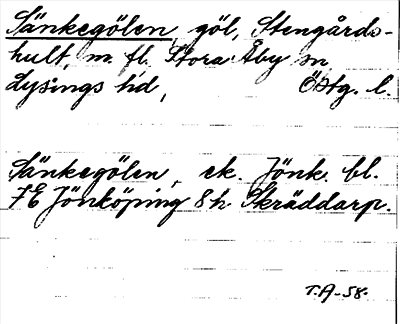 Sänkegölen, göl, Stengårds-
hult, m. fl. Stora Åby sn,
Lysings hd, Östg. l.
Sänkegölen, ek. Jönk. bl.
7E Jönköping 8h Skräddarp.
T.A-58.